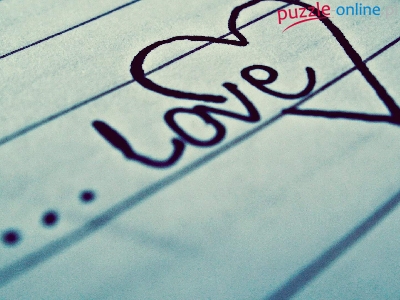 puzzle online
...love